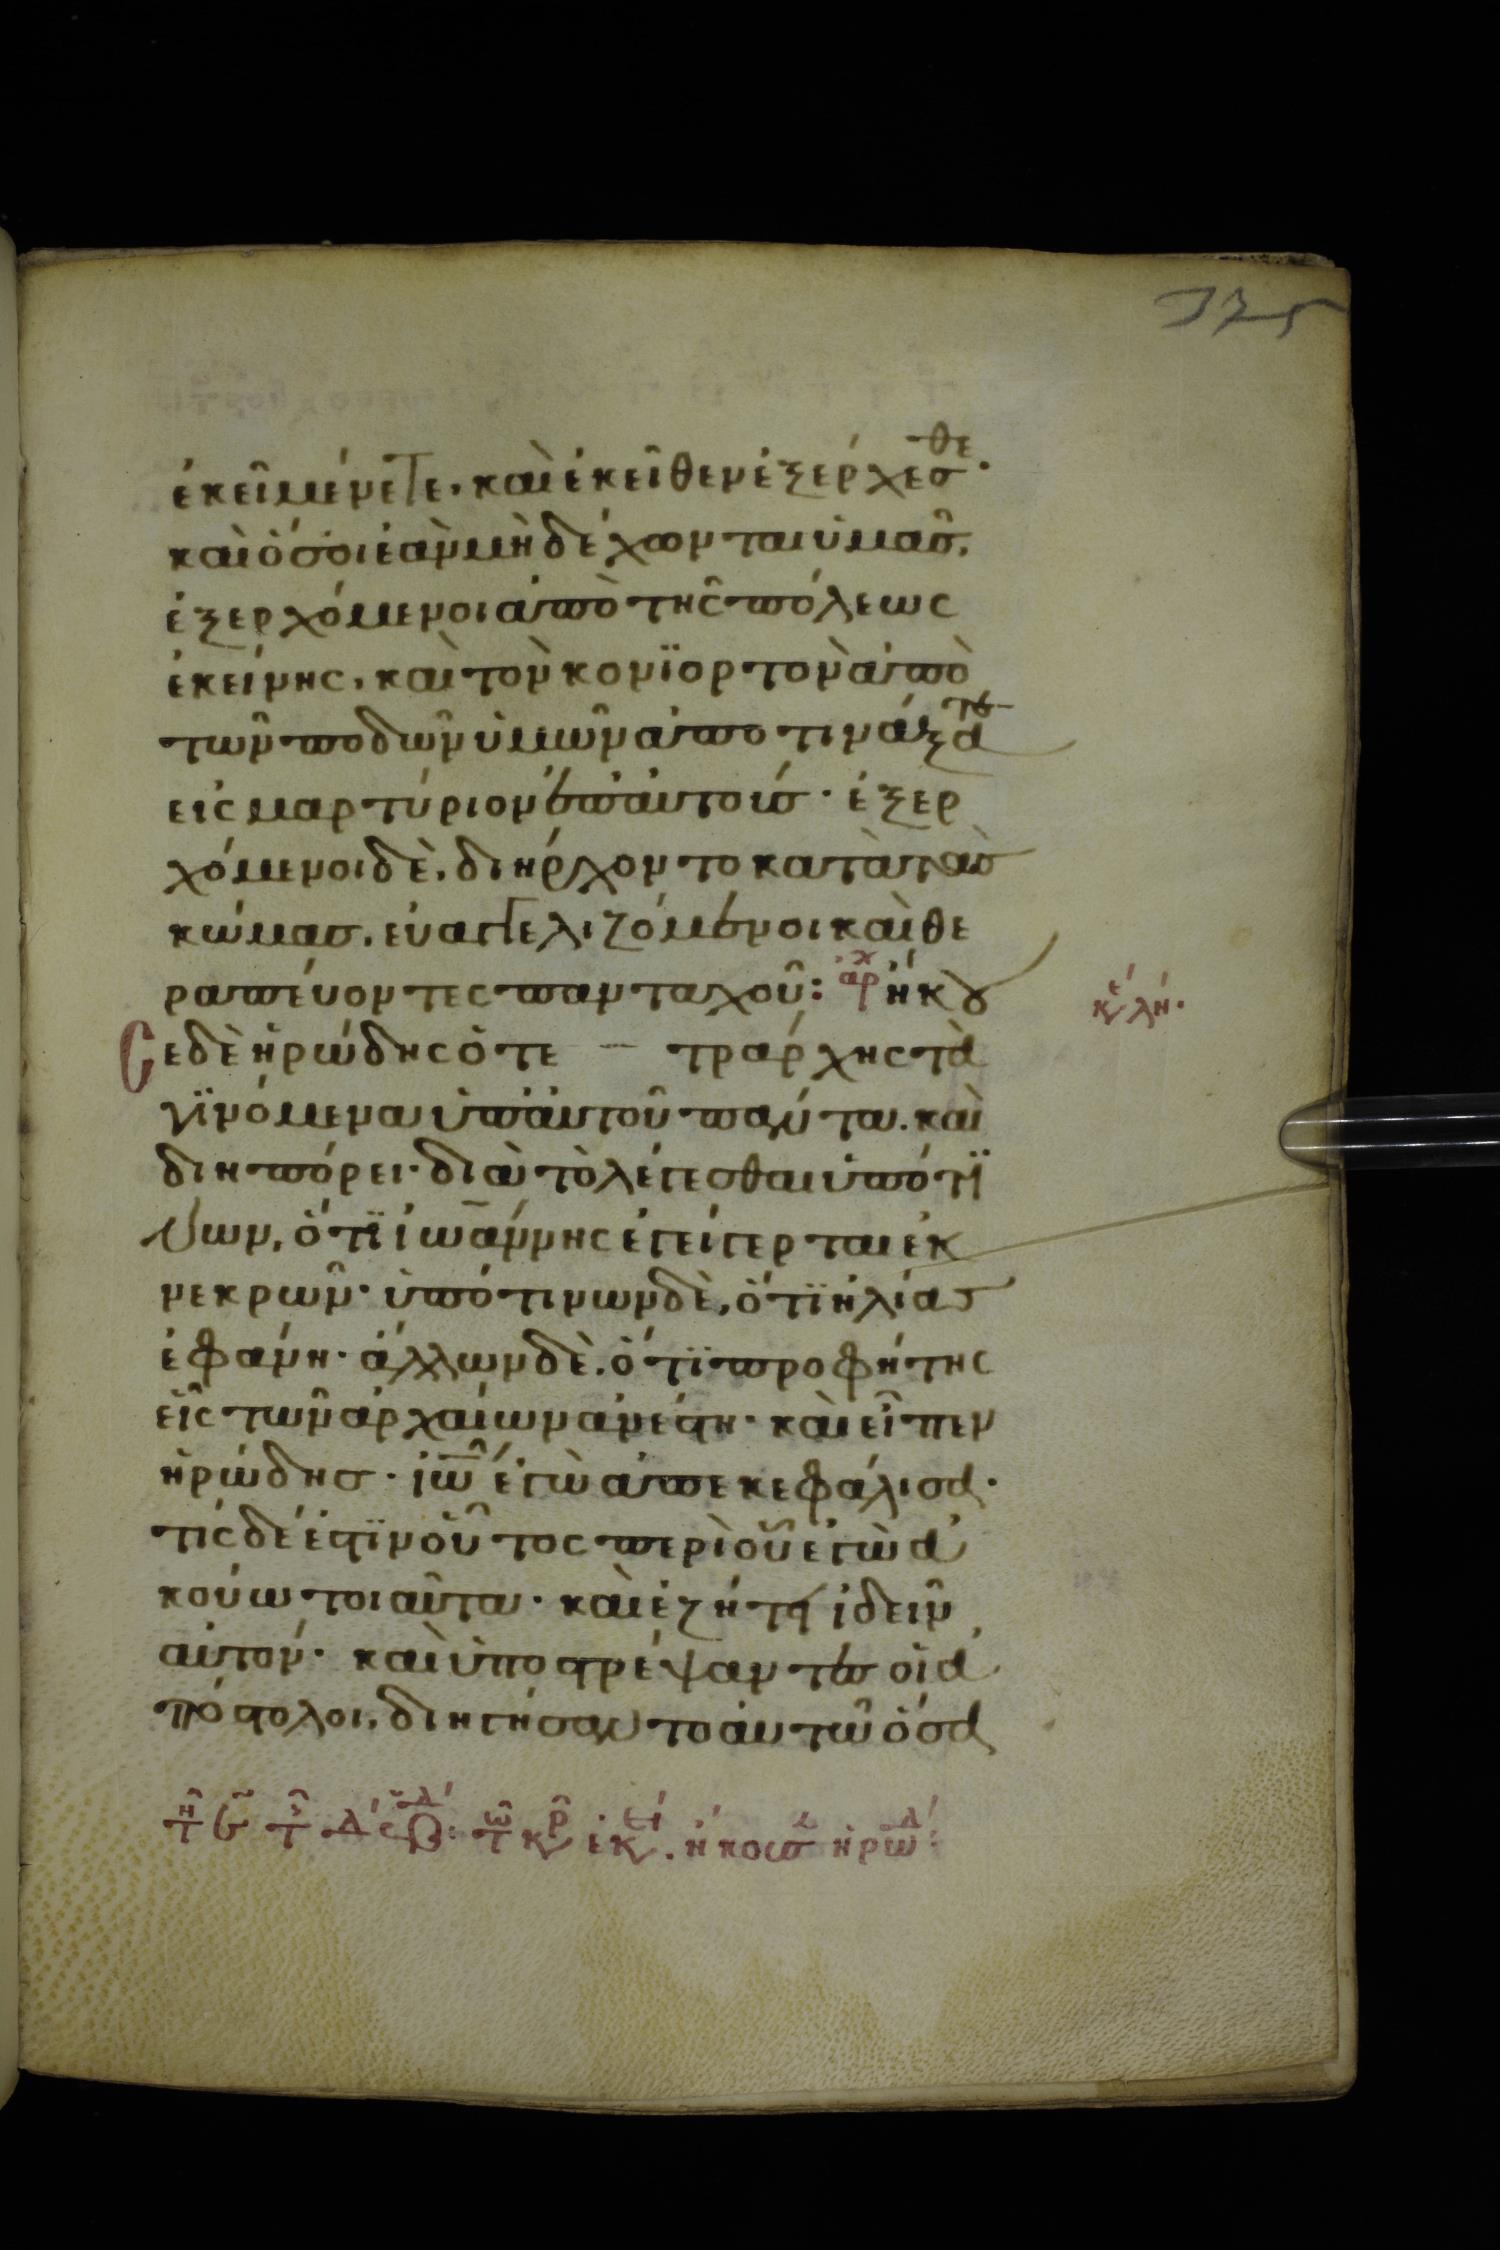 ἐκεῖ μένετε. καὶ ἐκεῖθεν ἐξέρχεσθε.
καὶ ὅσοι ἐὰν μὴ δέχωνται ὑμᾶς,
ἐξερχόμενοι ἀπὸ τῆς πόλεως
ἐκείνης, καὶ τὸν κονϊορτὸν ἀπὸ
τῶν ποδῶν ὑμῶν ἀποτινάξατε
εἰς μαρτύριον ἐπ' αὐτούς· ἐξερ
χόμενοι δὲ, διήρχοντο κατὰ τὰς
κώμας, εὐαγγελιζόμενοι καὶ θε
ραπεύοντες πανταχοῦ: ἀρχ ἤκου
κε λη.
σε δὲ ἡρώδης ὁ τε – τράρχης τὰ
γϊνόμενα ὑπ' αὐτοῦ πάντα. καὶ
διηπόρει· διὰ τὸ λέγεσθαι ὑπό τϊ
νων, ὅτϊ ἰωάννης ἐγείγερται ἐκ
νεκρῶν· ὑπό τινων δὲ, ὅτϊ ἠλίας
ἐφάνη· ἄλλων δὲ, ὅτϊ προφήτης
εἷς τῶν ἀρχαίων ἀνέστη· καὶ εἶπεν
ἡρώδης· ἰω ἐγὼ ἀπεκεφάλισα·
τίς δέ ἐστϊν οὗτος περὶ οὗ ἐγὼ ἀ
κούω τοιαῦτα· καὶ ἐζήτει ἰδεῖν
αὐτόν· καὶ ὑποστρέψαντες οἱ ἀ
πόστολοι, διηγήσαντο αὐτῷ ὅσα